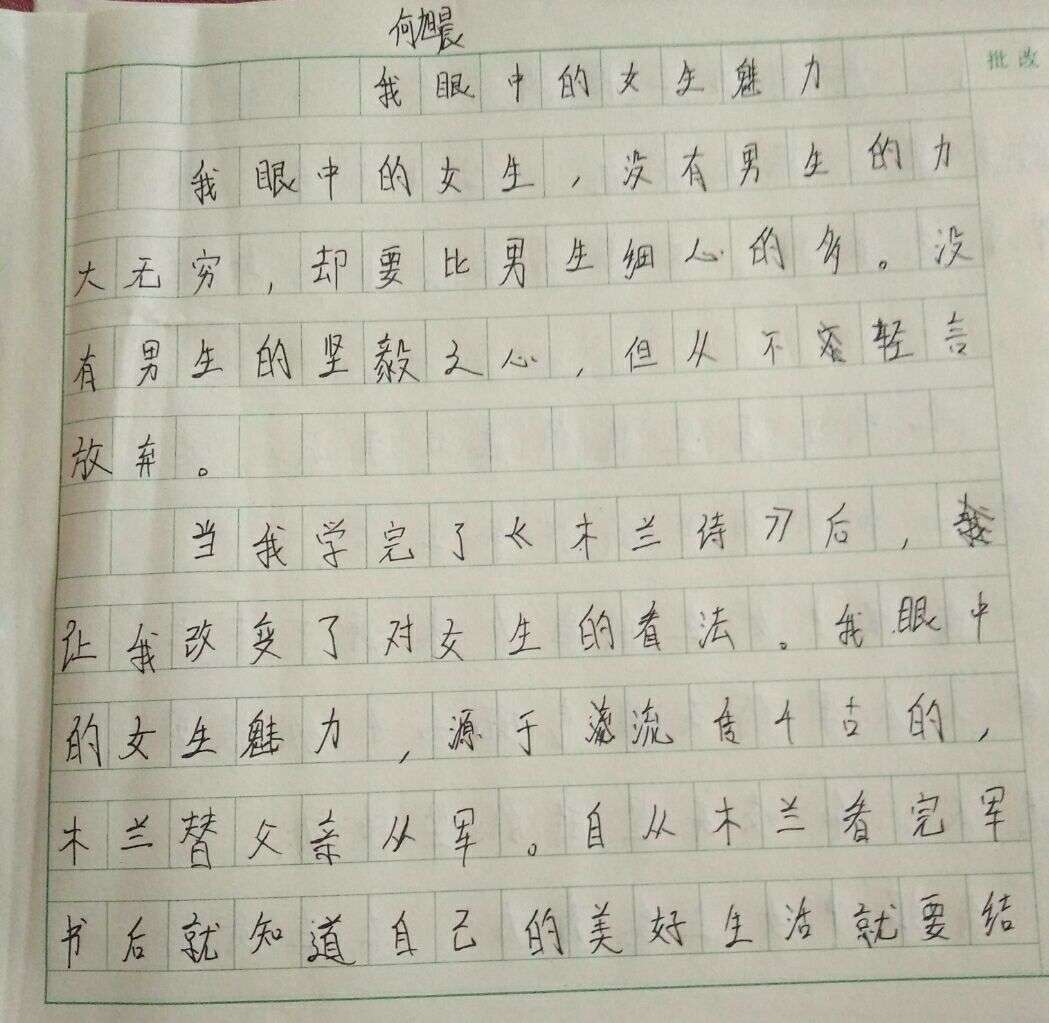 何旭晨
批改
我眼中的女生魅力
我眼中的女生,没有男生的力
大无穷,却要比男生细心的多。没
有男生的坚毅之心,但从不轻言
放弃。
当我学完了《木兰诗》后,
让我改变了对女生的看法。我眼中
的女生魅力,源于流传千古的,
木兰替父亲从军。自从木兰看完军
书后就知道自己的美好生活就要结